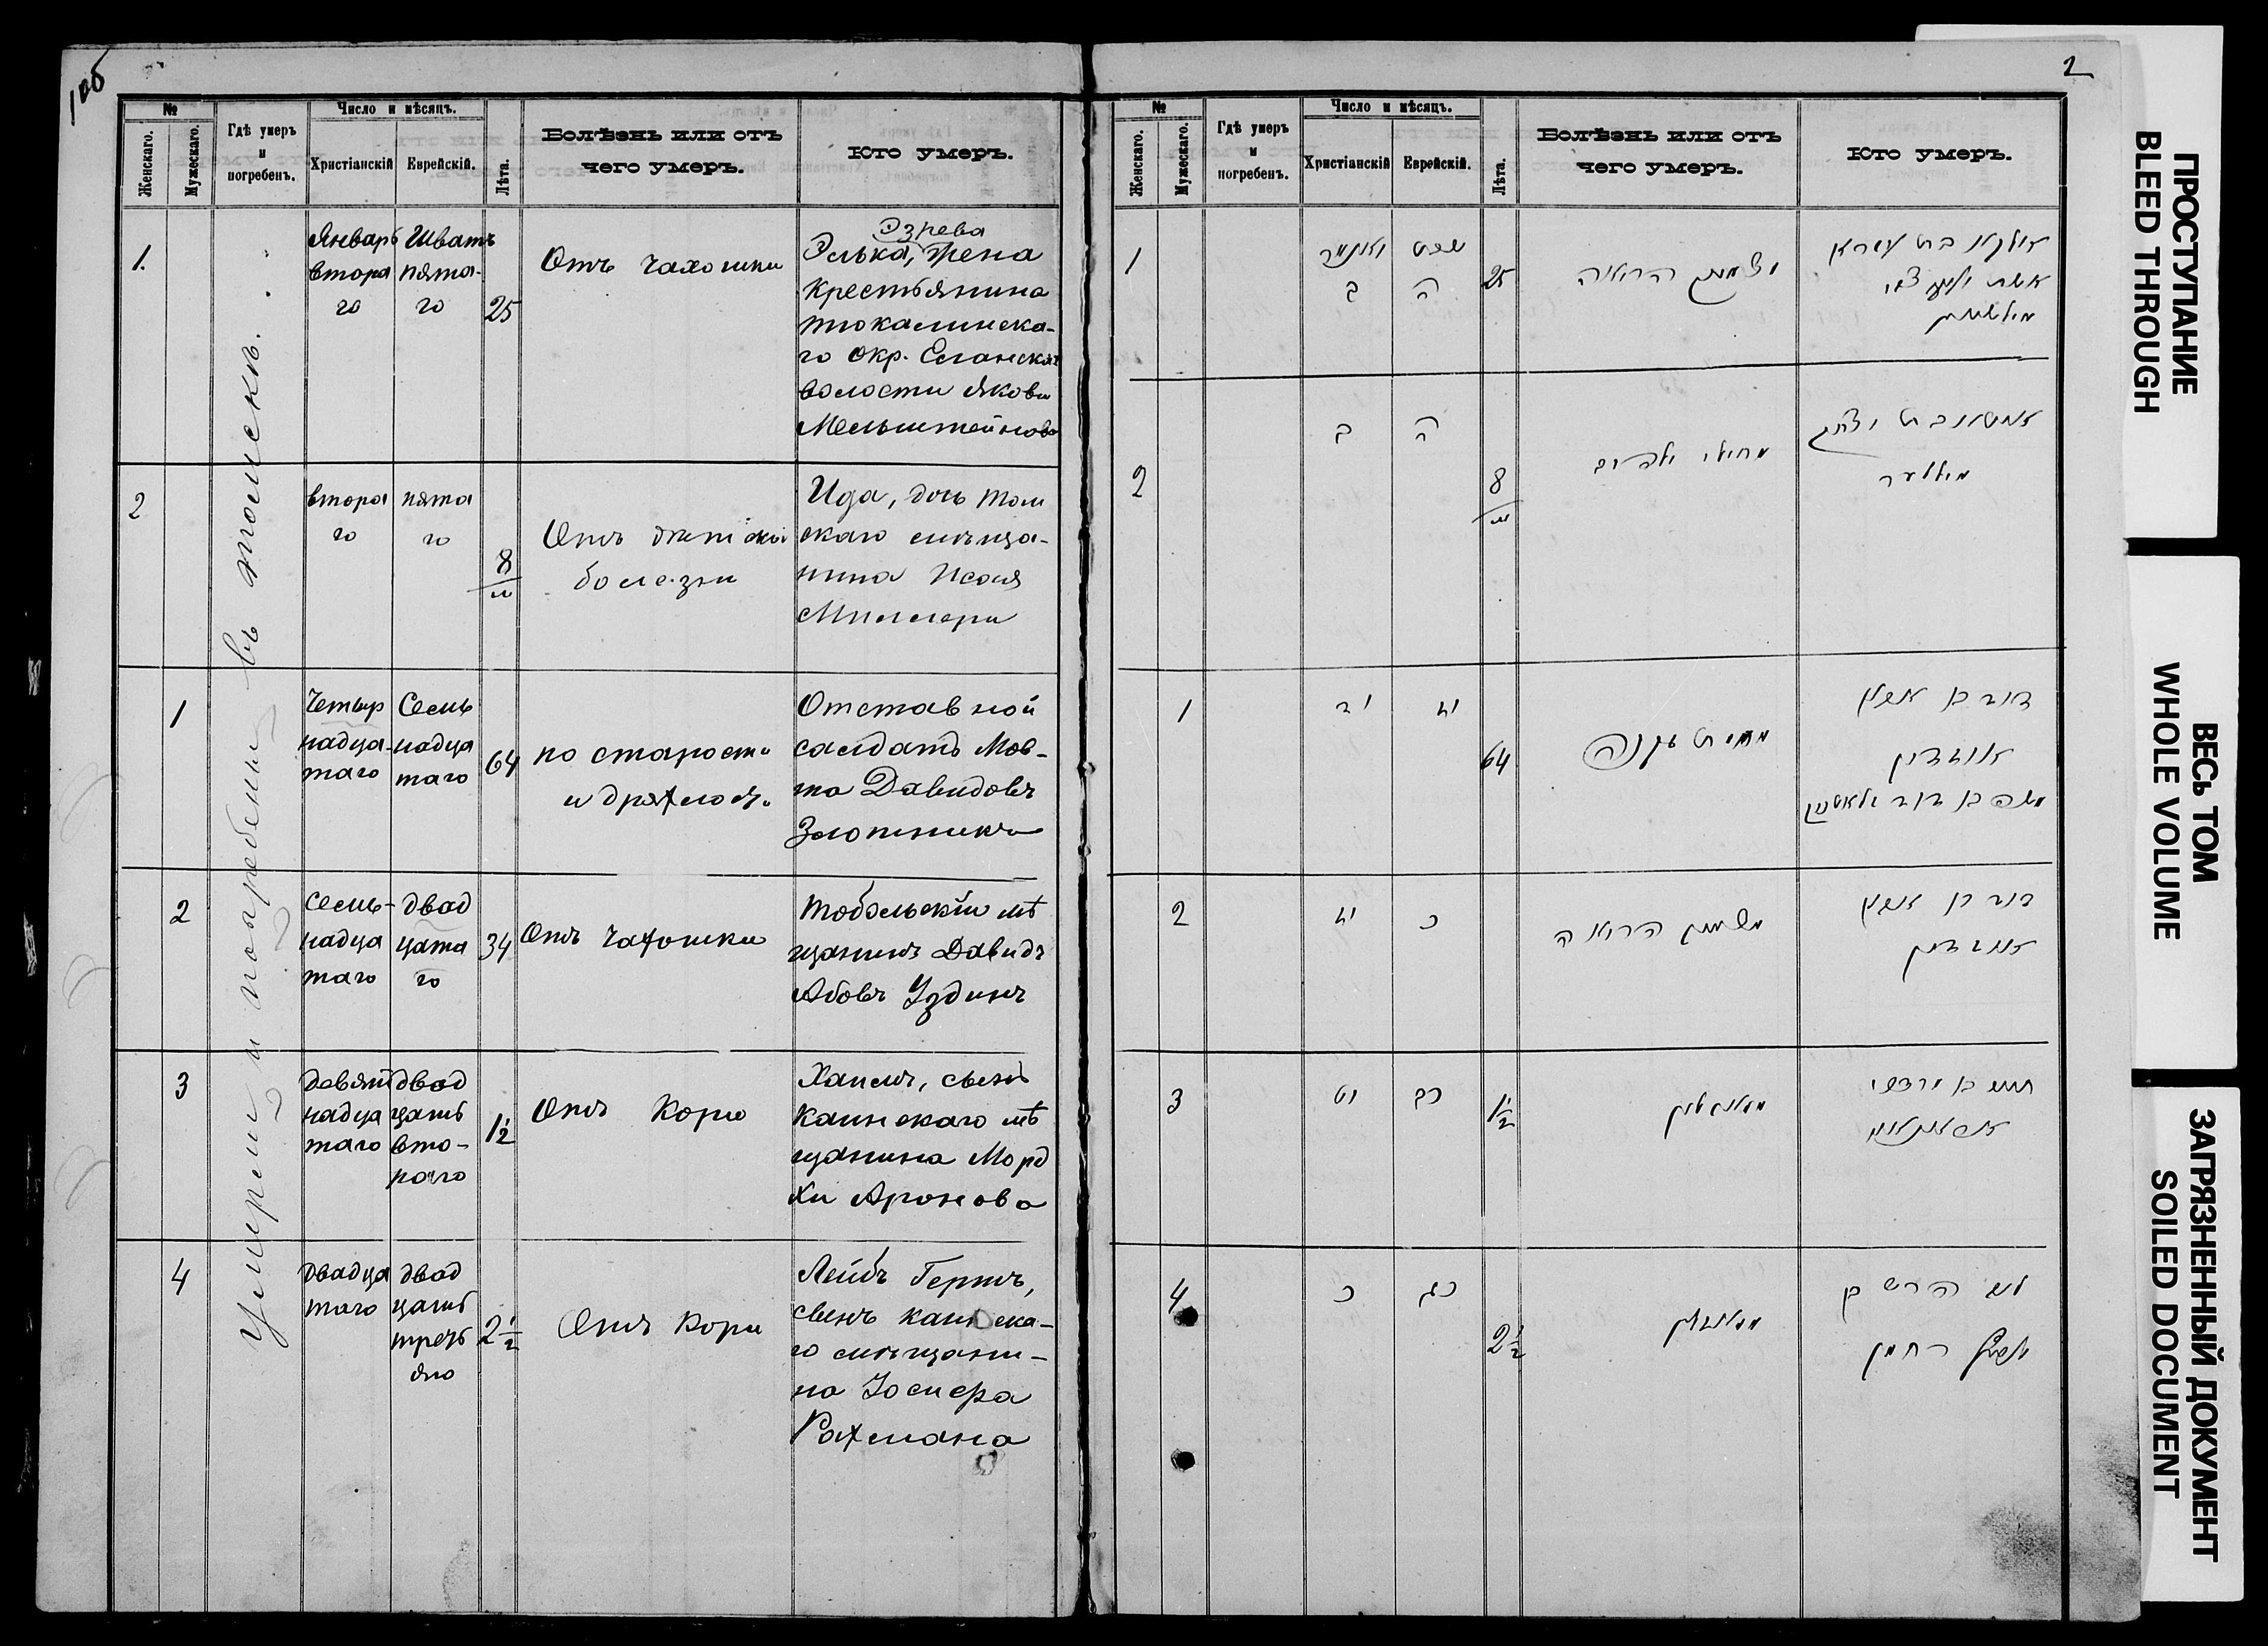 1об
№
Женскаго.
Мужескаго.
Гдѣ умеръ
и
погребенъ.
Число и мѣсяцъ.
Христіанскій
Еврейскій.
Лѣта.
Болѣзнь или отъ
чего умеръ.
Кто умеръ.
Умерли и погребены въ Томскѣ.
1.
Январь
втора
го
Шватъ
пята-
го
25
Отъ чахотки
Эзрева
Элька, жена
крестьянина
Тюкалинска-
го окр. Еланской
волости Якова
Мельштейнова
2
втора
го
пята
го
8
м
Отъ детской
болезни
Ида, дочь Том
скаго мѣща-
нина Исая
Миллера
1
Четыр
надца-
таго
Семь
надца
таго
64
по старости
и дряхлости
Отставной
салдатъ Мов-
ша Давидовъ
Злотникъ
2
Семь-
надца
таго
двад
цата
го
34
Отъ чахотки
Тобольскій мѣ
щанинъ Давидъ
Абовъ Уздинъ
3
Девят
надца
таго
двад
цать
вто-
раго
1½
Отъ Кори
Хаимъ, сынъ
Каинскаго мѣ
щанина Морд
хи Аронова
4
Двадца
таго
двад
цать
треть
яго
2½
Отъ Кори
Лейбъ Гершъ,
сынъ Каинска-
го мѣщани-
на Іосифа
Рахмана
2
№
Женскаго.
Мужескаго.
Гдѣ умеръ
и
погребенъ.
Число и мѣсяцъ.
Христіанскій
Еврейскій.
Лѣта.
Болѣзнь или отъ
чего умеръ.
Кто умеръ.
1
יאנואר
ב
שבט
ה
25
הריאה
אשת
2
ב
ה
8
מ
מחולי ילדים
מיללער
1
יד
יז
64
דוב בן
משה בן דוד
2
יז
כ
הריאה
דוד בן
3
יט
כב
1½
חיים בן מרדכי
4
כ
כג
2½
הירש בן
יוסף רחמן
ПРОСТУПАНИЕ
BLEED THROUGH
ВЕСЬ ТОМ
WHOLE VOLUME
ЗАГРЯЗНЕННЫЙ ДОКУМЕНТ
SOILED DOCUMENT